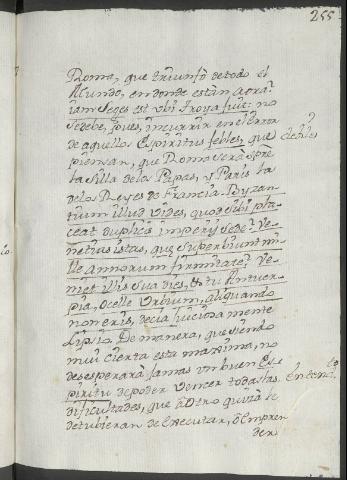 255
Roma, que triunfò de todo el
Mundo, en donde estàn aora?
iam Seges est ubi Troya fuit: no
se debe, pues, incurrir en el error
de aquellos Espiritus febles, que
piensan, que Roma serà spre
la Silla de los Papas, y Paris la
de los Reyes de Francia. Byzan-
tium illud vides, quod sibi pla-
ceat duplicis imperÿ sede? Ve-
netias istas, quę superbiunt mi-
lle annorum firmitate? Ve-
niet illis sua dies, & tu Antuer-
pia, ocelle Urbium, aliquando
non eris, decia juiciosamente
Lipsio. De manera, que siendo
mui cierta esta maxima, no
desesperarà jamas un buen Es-
piritu de poder vencer todas las
dificultades, que à Otro quizà le
detubieran de executar, ò empren
der